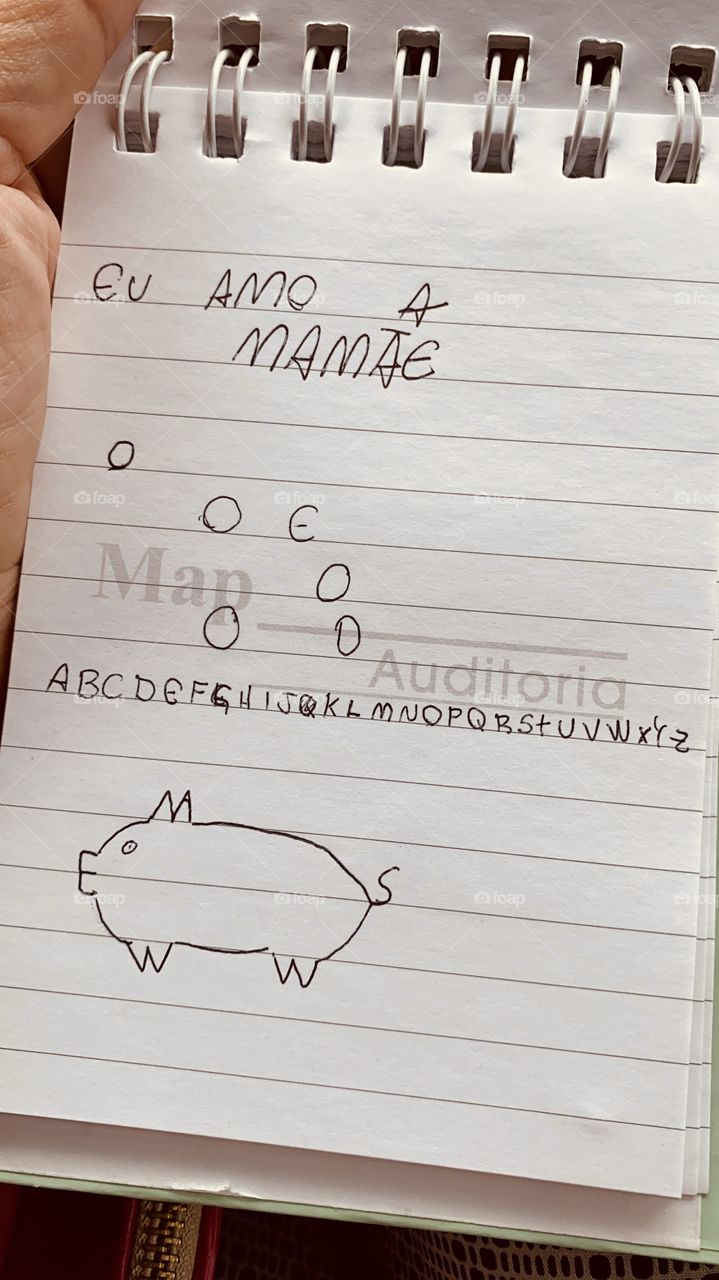 EU AMO A
MAMÃE
O
O E
O
O O
Map
Auditoria
ABCDEFGHIJKLMNOPQRStUVWXYZ
M
S
W W
foap